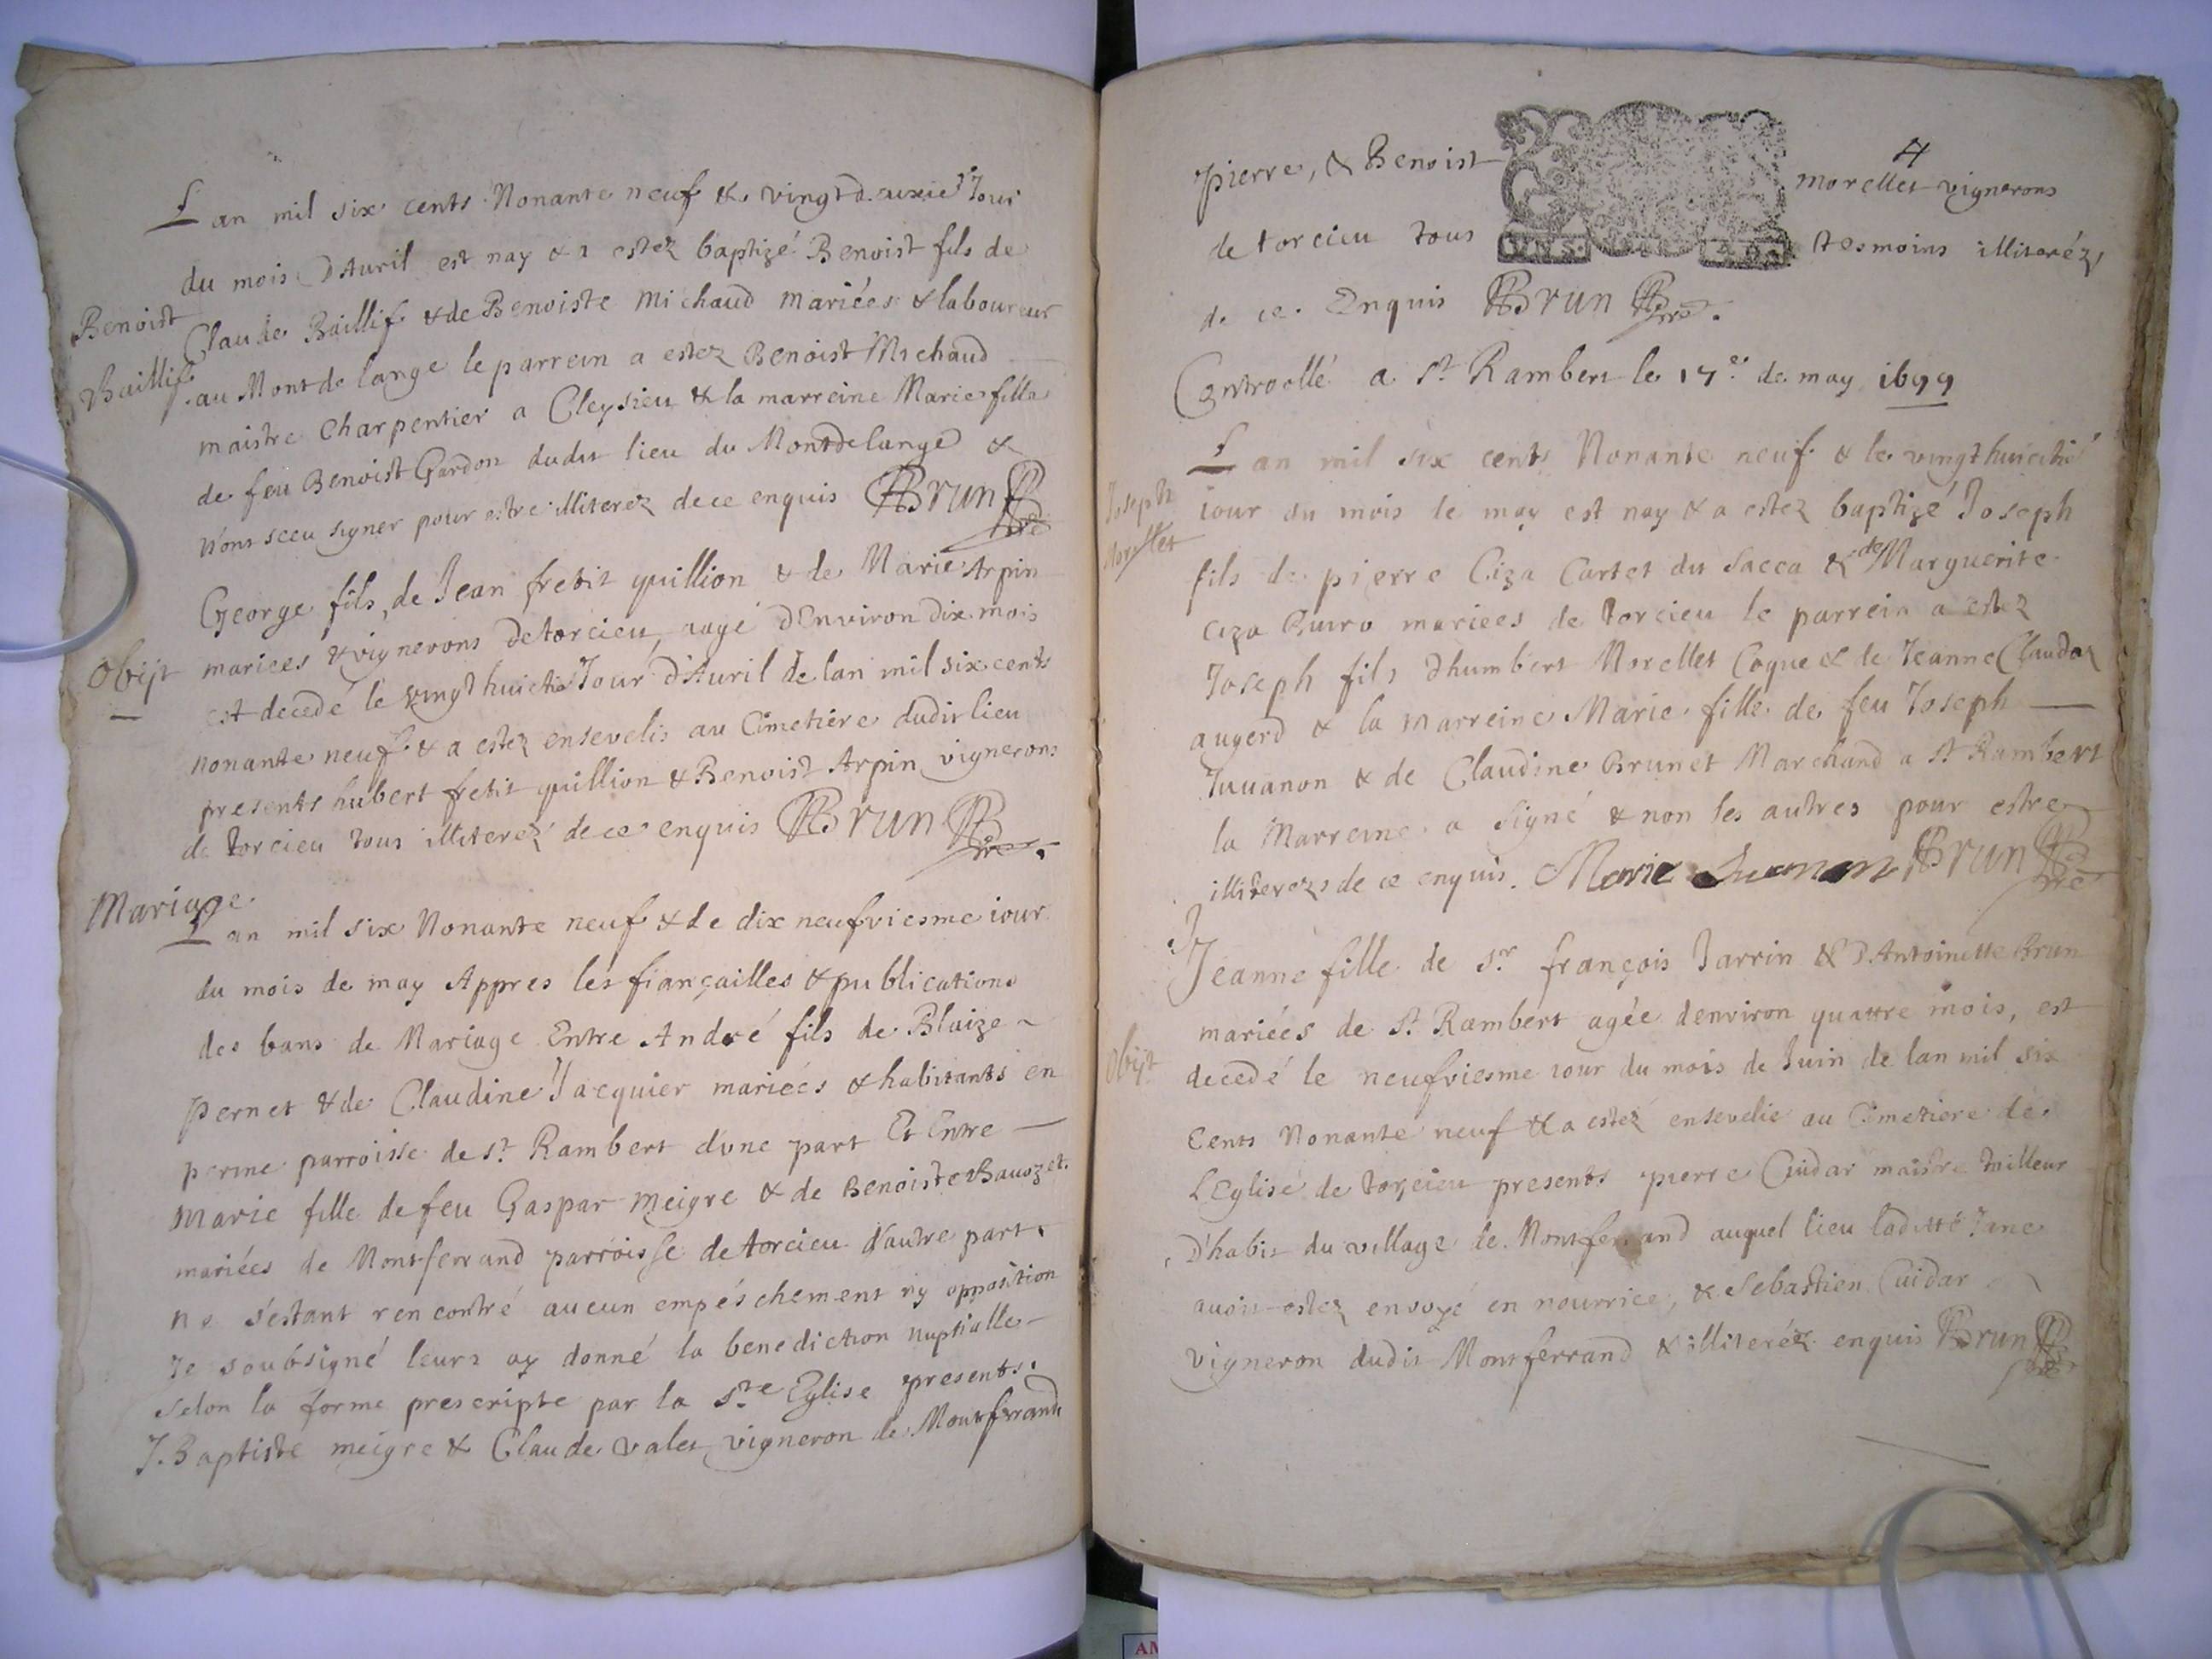 Lan mil six cents Nonante neuf & vingtdeuxie Jour
du mois D'Auril est nay & a estéz baptizé Benoist fils de
Benoist
Baillif
Claude Baillif & de Benoiste Michaud mariées & laboureur
au Mont de lange le parrein a estez Benoist Michaud
maistre Charpentier a Cleysieu & la marreine Marie fille
de feu Benoist Gardon dudit lieu du Montdelange &
n'ont sceu signer pour estre illiterez de ce enquis Brun Pbre
George fils de Jean fretit quillion & de Marie Arpin
Obijt
mariees & vignerons de torcieu, aagé d'Environ dix mois
est decedé le vingt huictie Jour d'Auril de lan mil six cents
nonante neuf & a estez ensevelis au Cimetiere dudit lieu
presents hubert fretit quillion & Benoist Arpin vignerons
de torcieu tous illiterez de ce enquis Brun Pbre.
Mariage
Lan mil six Nonante neuf & de dix neufviesme iour
du mois de may Appres les fiançailles & publications
des bans de Mariage Entre André fils de Blaize
Pernet & de Claudine Jacquier mariées & habitants en
perme parroisse de St Rambert d'une part Et Entre
Marie fille de feu Gaspar Meigre & de Benoiste Bauozet
mariées de Montferrand parroisse de torcieu d'autre part.
ne s'estant rencontré aucun empéschement ny opposition
Je soubsigné leurs ay donné la benediction nuptialle
selon la forme prescripte par la Ste Eglise presents.
J. Baptiste meigre & Claude valet vigneron de Montferrand
4
Pierre, & Benoist morellet vignerons
de torcieu tous tesmoins illiteréz,
de ce Enquis Brun Pbre.
Controollé a St Rambert le 17e de may 1699
Lan mil six cents Nonante neuf & le vingthuictie
Joseph
Morellet
iour du mois de may est nay & a estez baptizé Joseph
fils de pierre Ciza Cartet du Sacca & de Marguerite
Ciza Buiro mariees de torcieu le parrein a estez
Joseph fils d'humbert Morellet Coque & de Jeanne Claudaz
augerd & la Marreine Marie fille de feu Joseph
Juuanon & de Claudine Brunet Marchand a St Rambert
la Marreine a signé & non les autres pour estre
illiterezs de ce enquis. Marie Juuanon Brun Pbre
Jeanne fille de Sr françois Jarrin & D'Antoinette Brun
mariées de St Rambert agée denviron quattre mois, est
Obijt
decedé le neufviesme iour du mois de Juin de lan mil six
Cents Nonante neuf & a estéz ensevelie au Cimetiere de
L'Eglise de torcieu presents pierre Cuidar maistre tailleur
D'habit du village de Montferrand auquel lieu laditte Jane
auoit estez envoyé en nourrice, & Sebastien Cuidar
vigneron dudit Montferrand & illiteréz enquis Brun Pbre